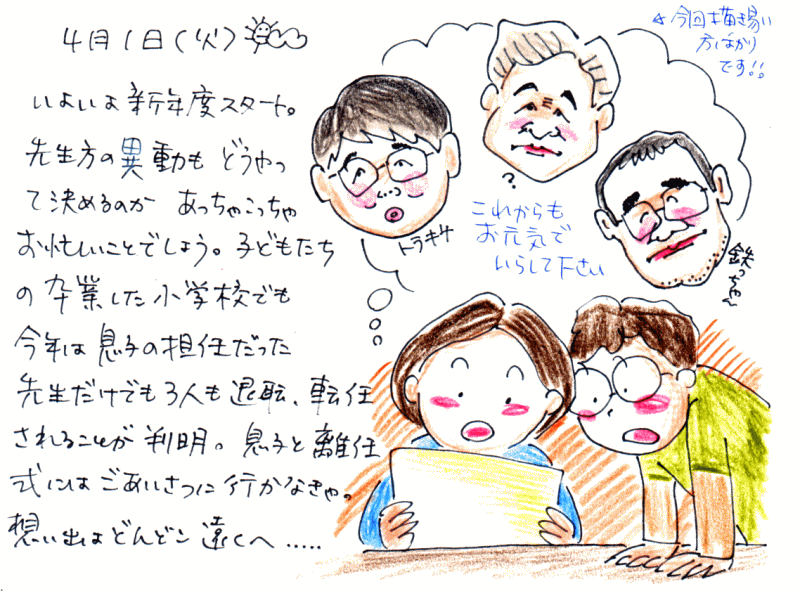 4月1日（火）
いよいよ新年度スタート。
先生方の異動も どうやっ
て決めるのか あっちゃこっちゃ
お忙しいことでしょう。子どもたち
の卒業した小学校でも
今年は息子の担任だった
先生だけでも3人も退転、転任
されることが判明。息子と離任
式にはごあいさつに行かなきゃ。
想い出はどんどん遠くへ.....
☆今回描き易い
方ばかり
です!!
トラキチ
?
これからも
お元気で
いらして下さい
鉄っちゃん